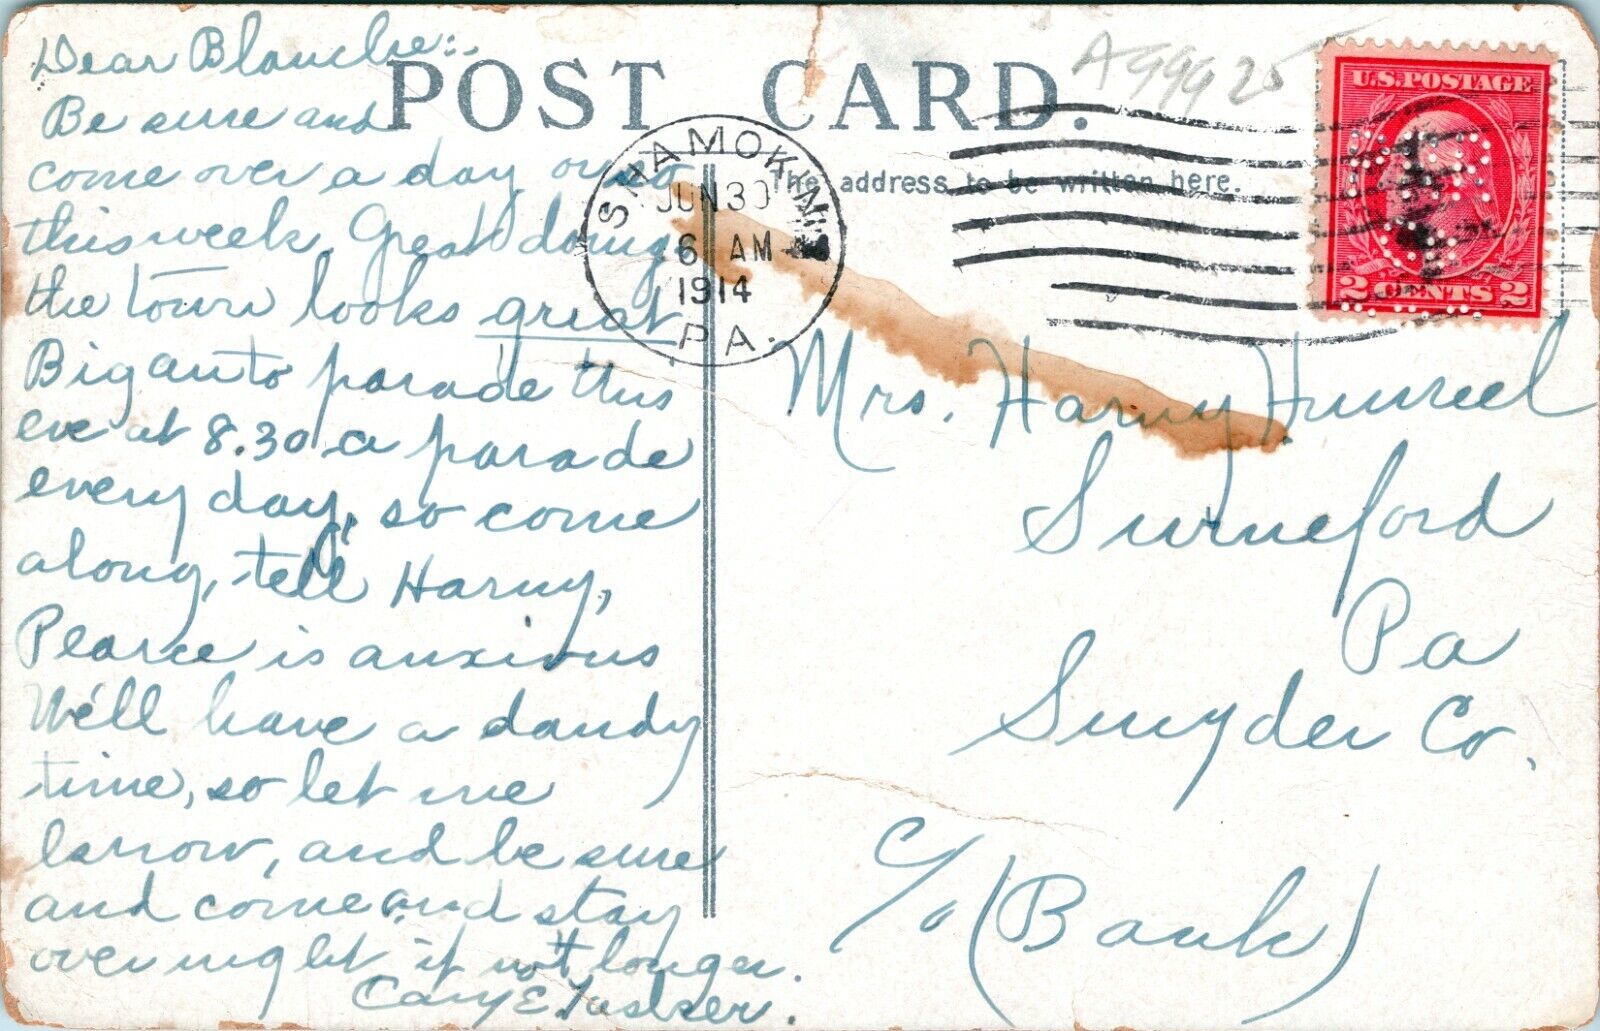 POST CARD.
A99925
U.S. POSTAGE
2 CENTS 2
SHAMOKIN
JUN 30
6 AM
1914
PA.
The address to be written here.
Dear Blanche:
Be sure and
come over a day or so
this week. Great doings
the town looks great
Big auto parade this
eve at 8.30 a parade
every day, so come
along, tell Harvy,
Pearce is anxious
We'll have a dandy
time, so let me
know, and be sure
and come and stay
over night if not longer.
Mrs. Harvy
Pa
Snyder Co.
c/o (Bank)